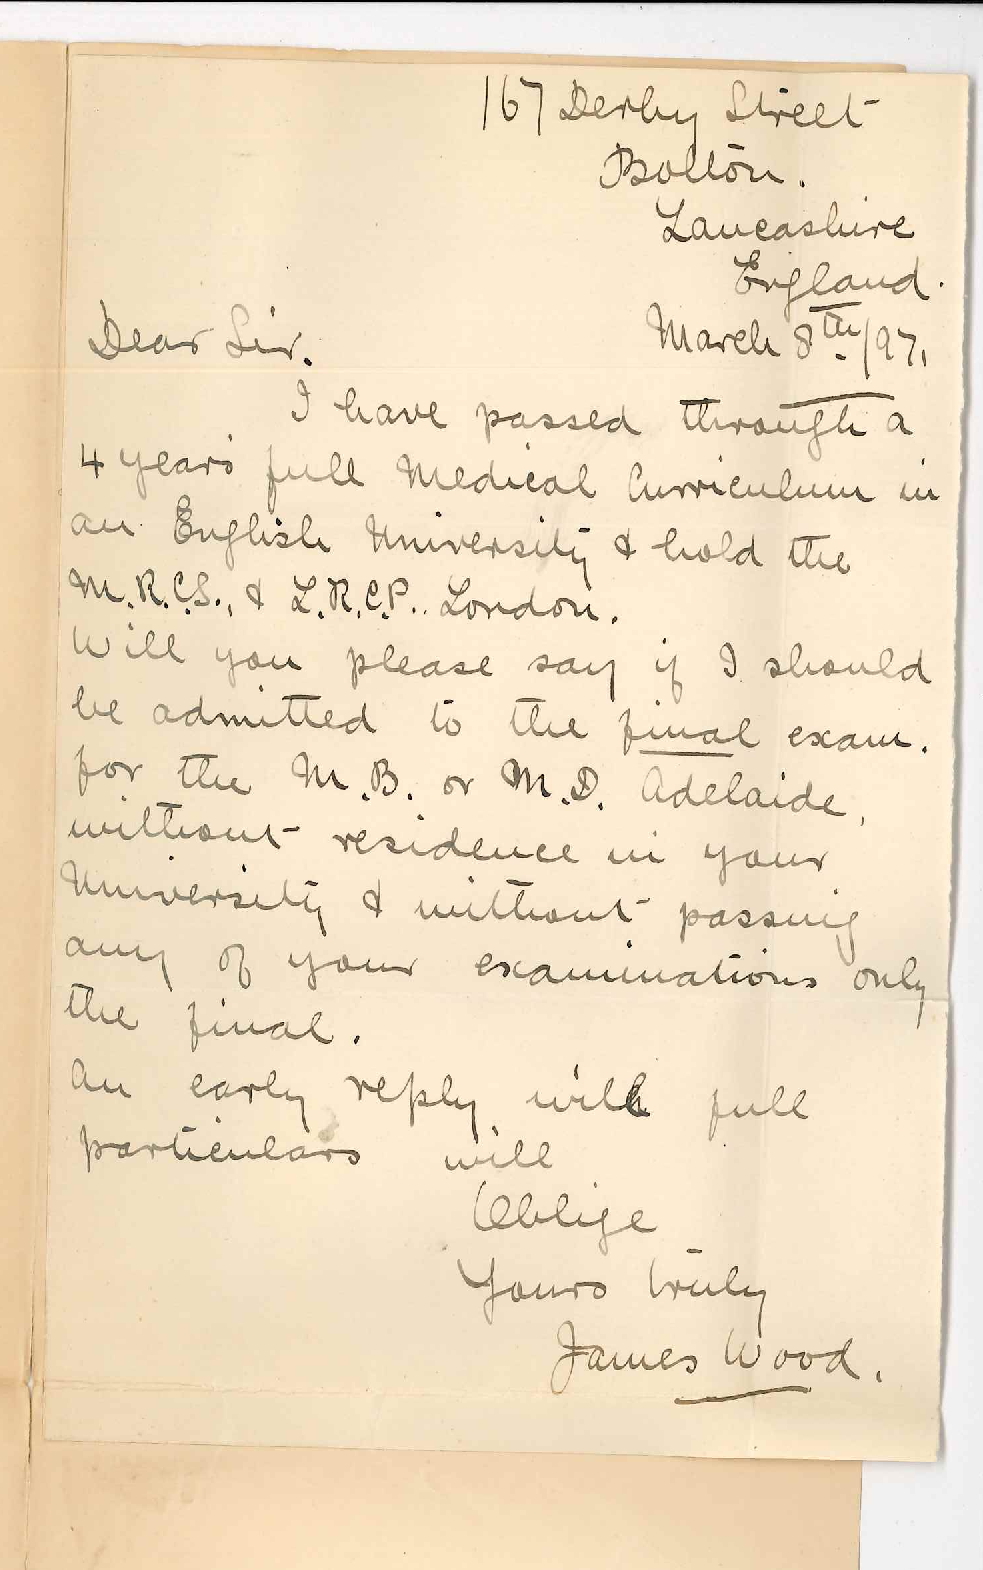 167 Derby Street
Bolton.
Lancashire
England.
March 8th/97.
Dear Sir.
I have passed through a
4 years full Medical Curriculum in
an English University & hold the
M.R.C.S., & L.R.C.P. London.
Will you please say if I should
be admitted to the final exam.
for the M.B. or M.D. Adelaide,
without residence in your
University & without passing
any of your examinations only
the final.
An early reply with full
particulars will
Oblige
Yours truly
James Wood.